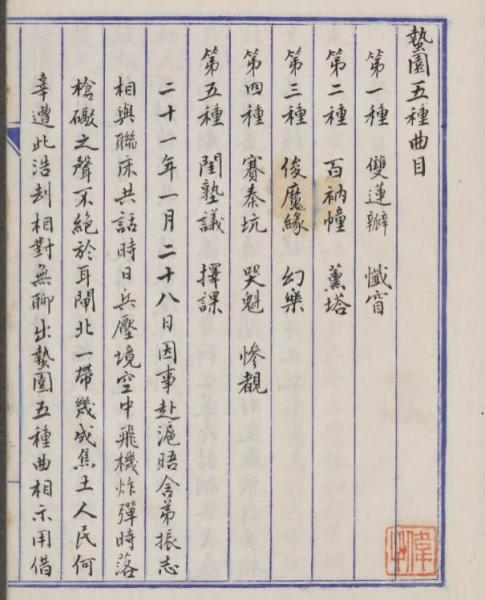 蟄園五種曲目
第一種 雙蓮瓣 懺窅
第二種 百衲幢 薰塔
第三種 倰魔緣 幻樂
第四種 賽秦坑 哭魁 慘覩
第五種 閨塾議 擇課
二十一年一月二十八日因事赴滬晤舍弟振志
相與聯床共話時日兵壓境空中飛機炸彈時落
槍礮之聲不絕於耳閘北一帶幾成焦土人民何
辜遭此浩刦相對無聊出蟄園五種曲相示用借